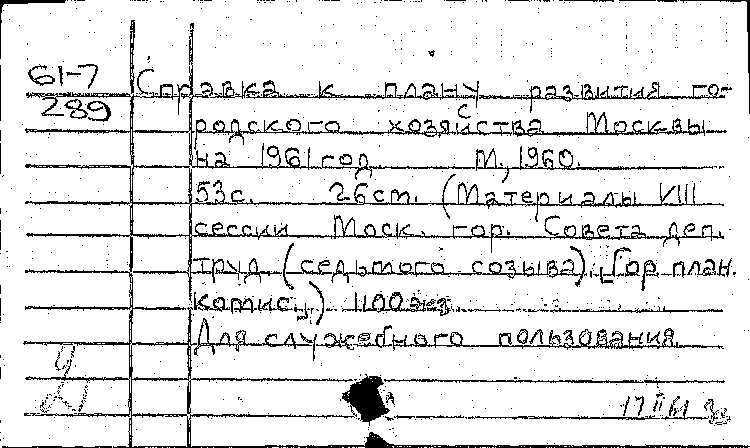 61-7
289
Справка к плану развития го-
родского хозяйства Москвы
на 1961 год. М., 1960.
53с. 26 см. (Материалы VIII
сессии Моск. гор. Совета деп.
труд. (седьмого созыва). [Гор план.
комис.]) 1100 экз.
Для служебного пользования.
17 II 61